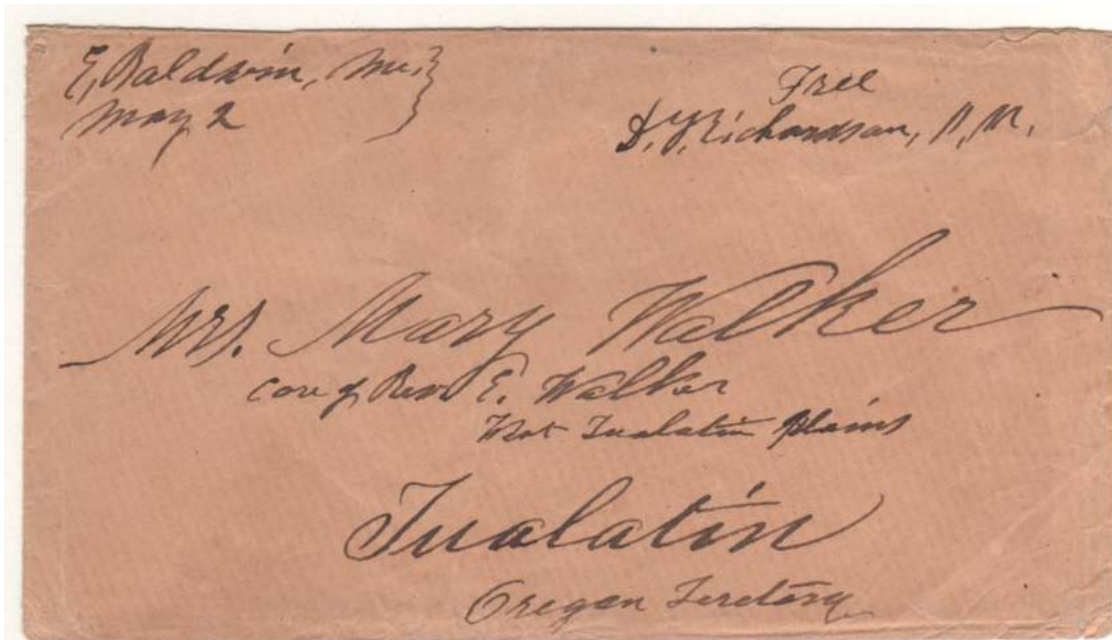 E, Baldwin, Me.
May 2
Free
D. Y. Richardson, P, M,
Mrs. Mary Walker
care of Rev E. Walker
West Tualatin Plains
Tualatin
Oregon Teretory